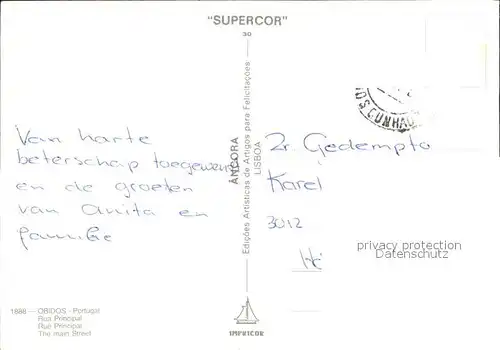 "SUPERCOR"
30
Van harte
beterschap toegewenst
en de groeten
van Anita en
familie
ÂNCORA
Edições Artísticas de Artigos para Felicitações
LISBOA
OS CUNHA
Zr. Gedempta
Karel
3012
privacy protection
Datenschutz
1886 - OBIDOS - Portugal
Rua Principal
Rue Principal
The main Street
IMPRICOR